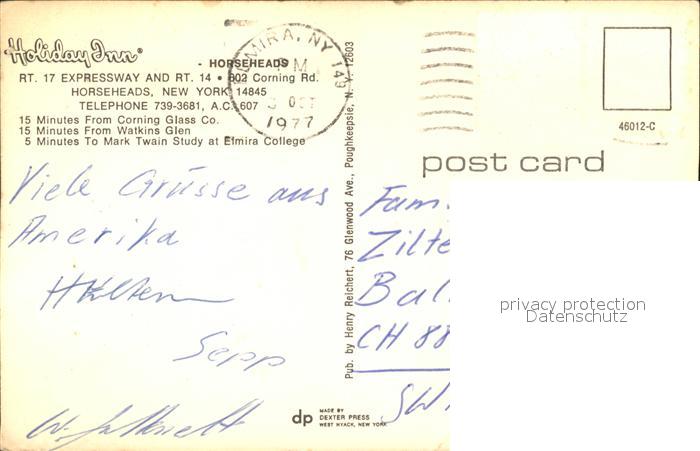 Holiday Inn®
- HORSEHEADS
RT. 17 EXPRESSWAY AND RT. 14 • 802 Corning Rd.
HORSEHEADS, NEW YORK 14845
TELEPHONE 739-3681, A.C. 607
15 Minutes From Corning Glass Co.
15 Minutes From Watkins Glen
5 Minutes To Mark Twain Study at Elmira College
ELMIRA, NY 149
PM
OCT
1977
46012-C
post card
Viele Grüsse aus
Amerika
Sepp
Pub. by Henry Reichert, 76 Glenwood Ave., Poughkeepsie, N. Y. 12603
Fam.
Zilte
Bal
CH 88
SW
dp
MADE BY
DEXTER PRESS
WEST NYACK, NEW YORK
privacy protection
Datenschutz